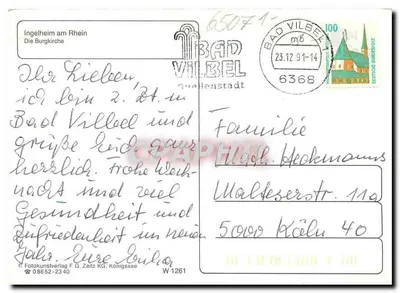 Ingelheim am Rhein
Die Burgkirche
65071-
BAD
VILBEL
Quellenstadt
BAD VILBEL 1
mb
23.12.91-14
6368
100
DEUTSCHE BUNDESPOST
Ihr Lieben,
ich bin z. Zt. in
Bad Vilbel und
grüße Euch ganz
herzlich. Frohe Weih-
nacht und viel
Gesundheit und
Zufriedenheit im neuen
Jahr. Eure Erika
Familie
Heckmanns
Malteserstr. 11a
5000 Köln 40
© Fotokunstverlag F. G. Zeitz KG, Königssee
☎ 08652-2340
W 1261